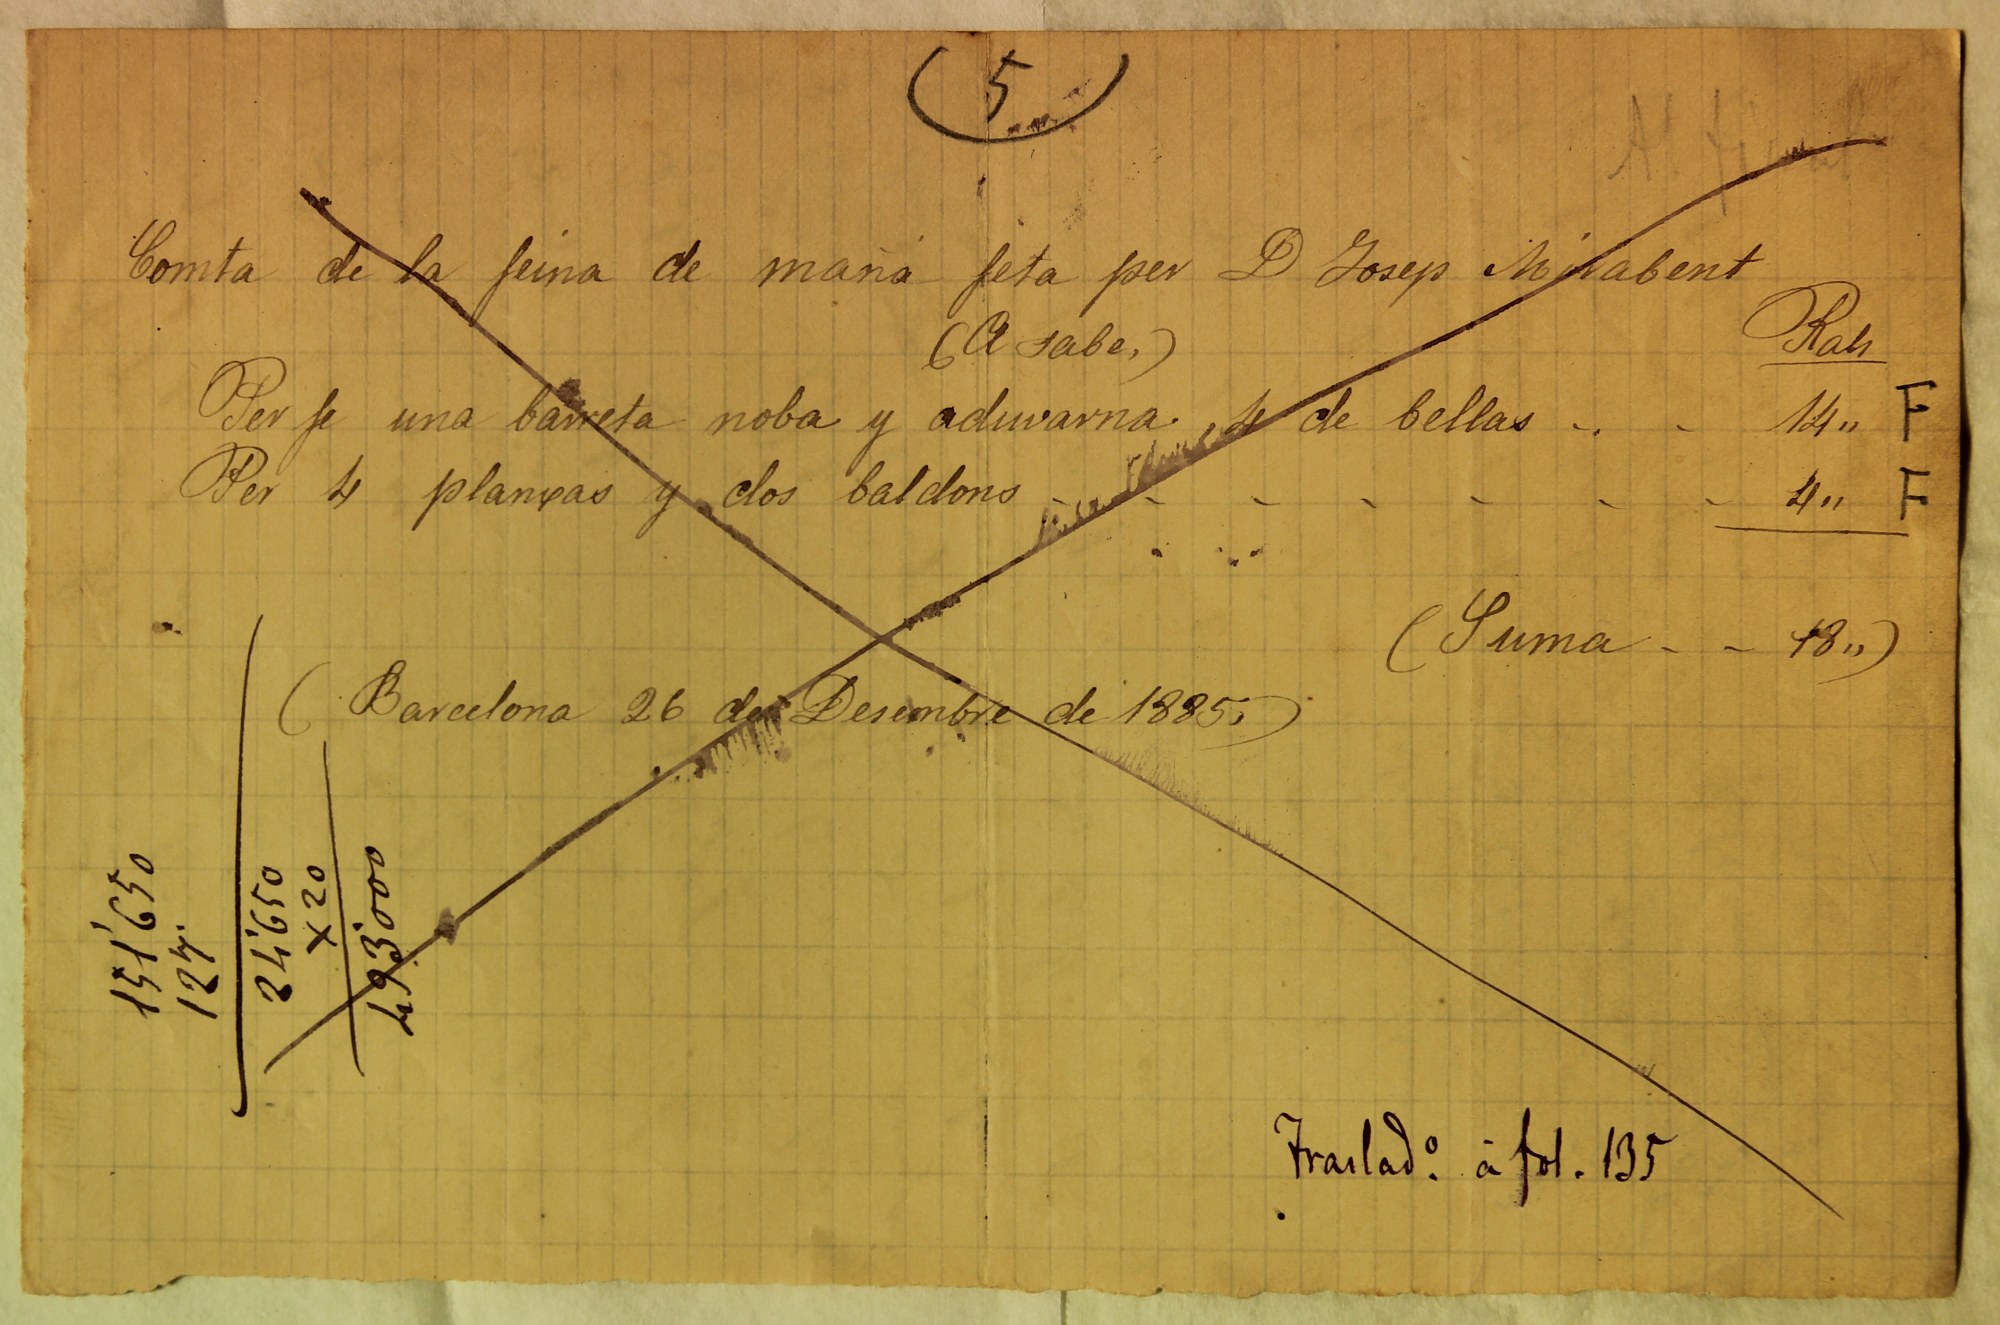 (5)
Comta de la feina de mañá feta per D Josep Mirabent
(A sabe,)
Rals
Per fe una barreta noba y aduvarna 4 de bellas - - 14" F
Per 4 planxas y dos baldons - - - - - - - 4" F
(Suma - - 18")
(Barcelona 26 de Desembre de 1885,)
151'650
12%
24'650
×20
493'000
Traslad.º á fol. 135